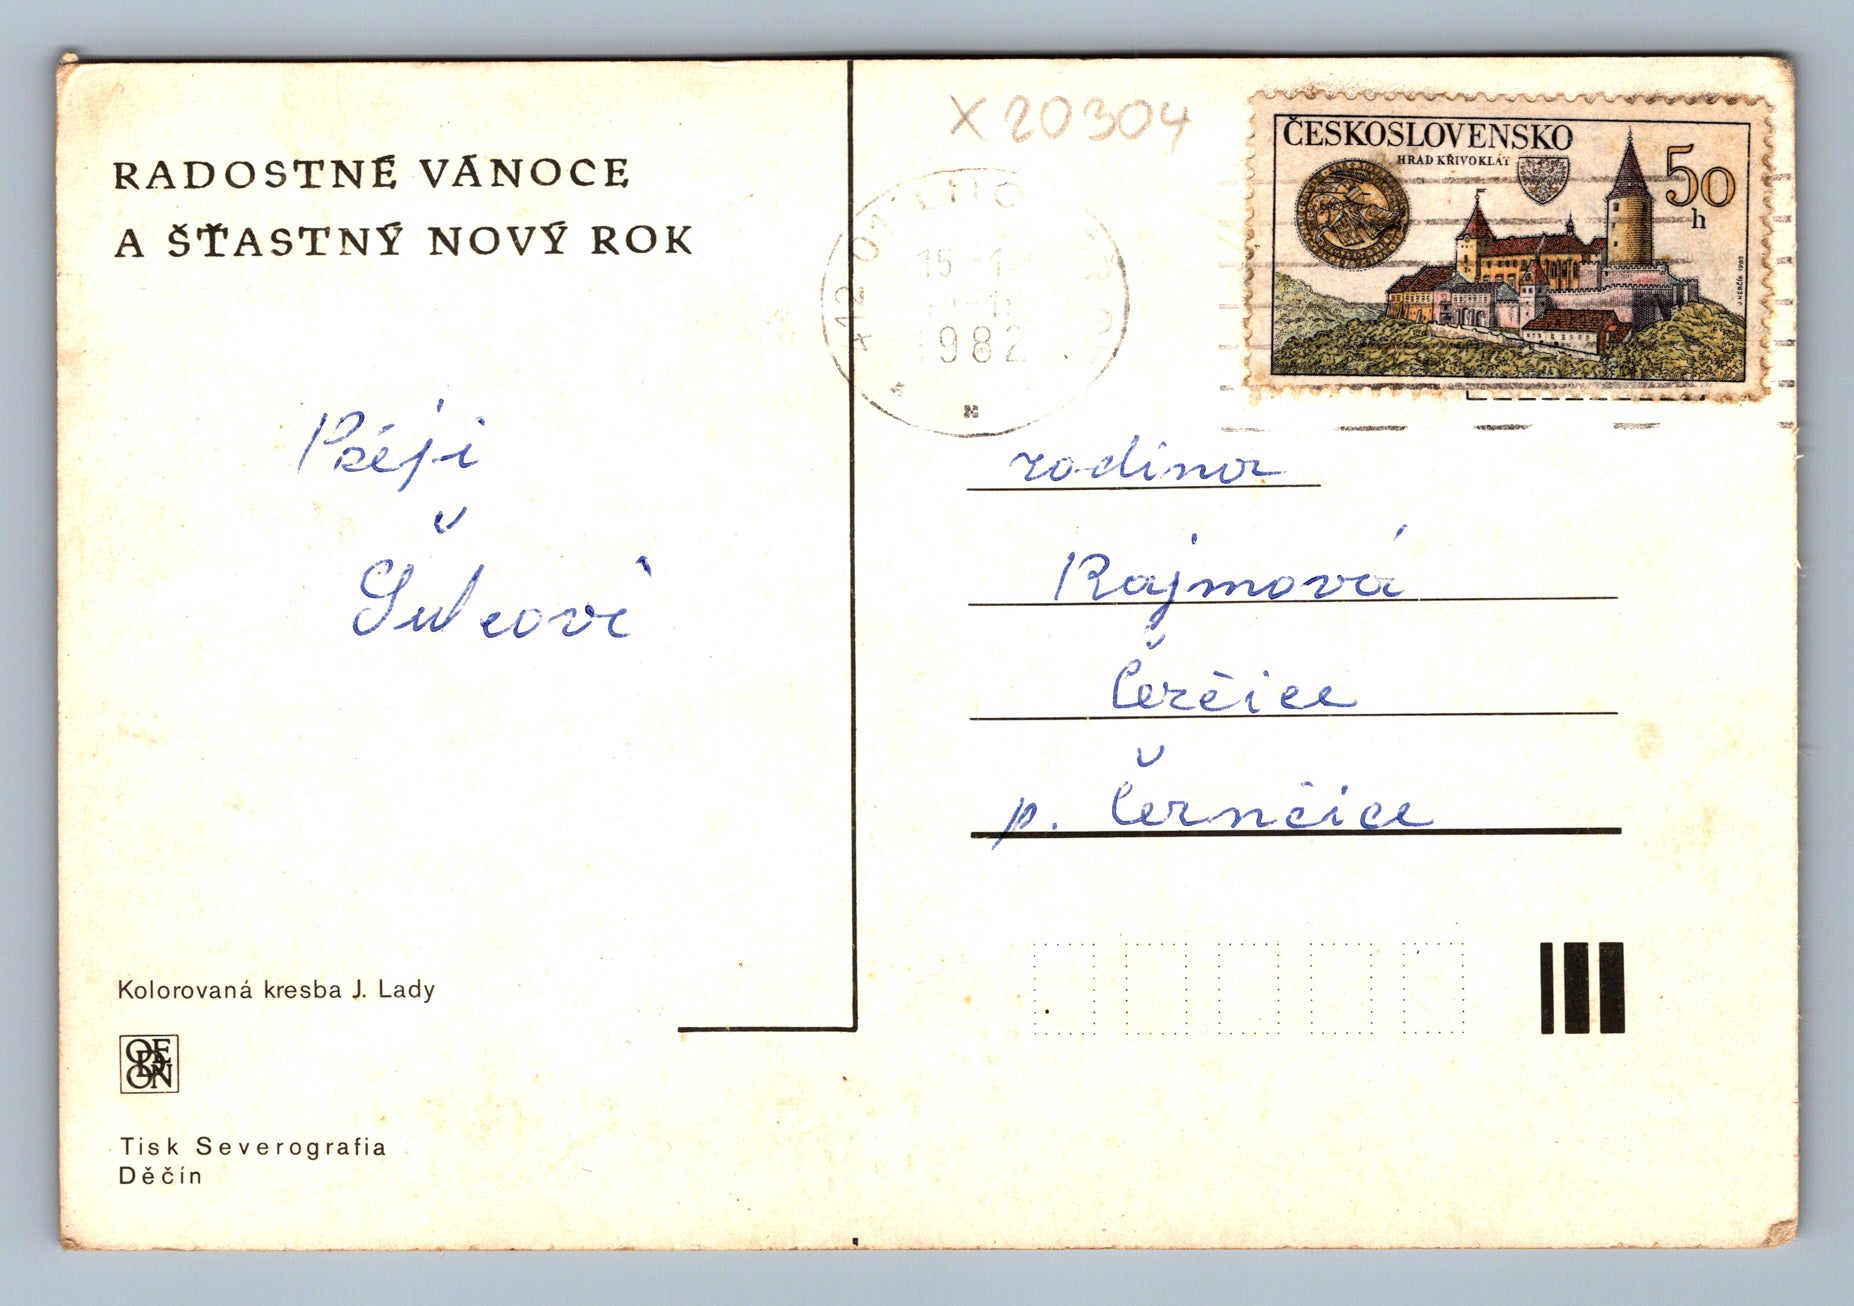 RADOSTNÉ VÁNOCE
A ŠŤASTNÝ NOVÝ ROK
Přeji
Šulcovi
Kolorovaná kresba J. Lady
ODEON
Tisk Severografia
Děčín
X 20304
412 01
15.-12
1982
ČESKOSLOVENSKO
HRAD KŘIVOKLÁT
50
h
rodina
Rajmová
Čerčice
p. Černčice